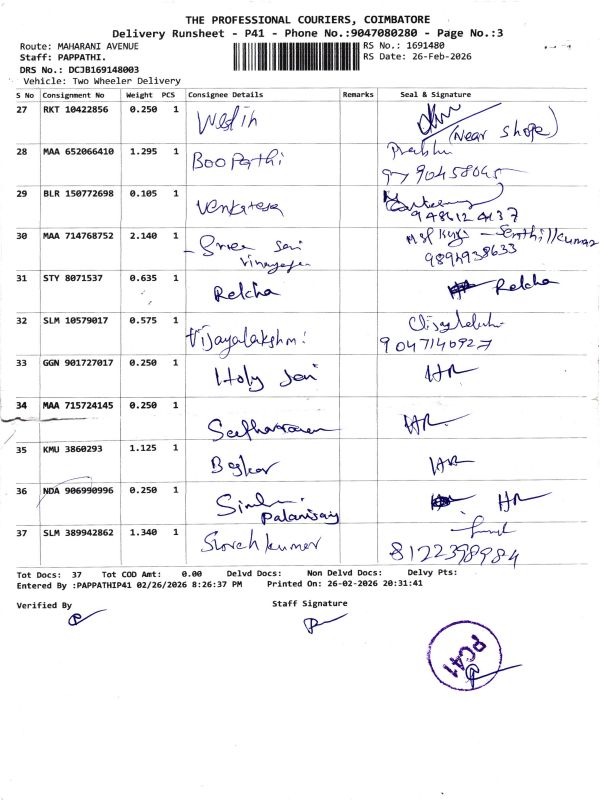 THE PROFESSIONAL COURIERS, COIMBATORE
Delivery Runsheet - P41 - Phone No.:9047080280 - Page No.:3
Route: MAHARANI AVENUE
Staff: PAPPATHI.
DRS No.: DCJB169148003
Vehicle: Two Wheeler Delivery
RS No.: 1691480
RS Date: 26-Feb-2026
S No Consignment No Weight PCS Consignee Details Remarks Seal & Signature
27 RKT 10422856 0.250 1 Westin (Near shope)
28 MAA 652066410 1.295 1 Boopathi Prabhu
29 BLR 150772698 0.105 1 Venkatesa
30 MAA 714768752 2.140 1 Sree Sai Vinayaga Senthilkumar
31 STY 8071537 0.635 1 Rekha Rekha
32 SLM 10579017 0.575 1 Vijayalakshmi
9047140927
33 GGN 901727017 0.250 1 Holy Sai HR
34 MAA 715724145 0.250 1 Seetharaman HR
35 KMU 3860293 1.125 1 Baskar HR
36 NDA 906990996 0.250 1 Palanisamy HR
37 SLM 389942862 1.340 1
8122398984
Tot Docs: 37 Tot COD Amt: 0.00 Delvd Docs: Non Delvd Docs: Delvy Pts:
Entered By :PAPPATHIP41 02/26/2026 8:26:37 PM Printed On: 26-02-2026 20:31:41
Verified By
Staff Signature
PC41